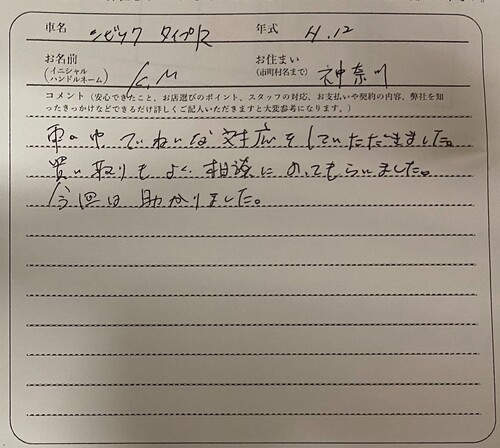 車名 シビック タイプR 年式 H.12
お名前 (イニシャル ハンドルネーム) K.M お住まい (市町村名まで) 神奈川
コメント (安心できたこと、お店選びのポイント、スタッフの対応、お支払いや契約の内容、弊社を知
ったきっかけなどできるだけ詳しくご記入いただきますと大変参考になります。)
ていねいな対応をしていただきました。
買い取りもよく相談にのってもらいました。
今回は助かりました。